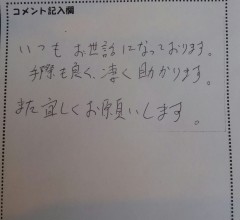 コメント記入欄
いつもお世話になっております。
手際も良く、凄く助かります。
また宜しくお願いします。